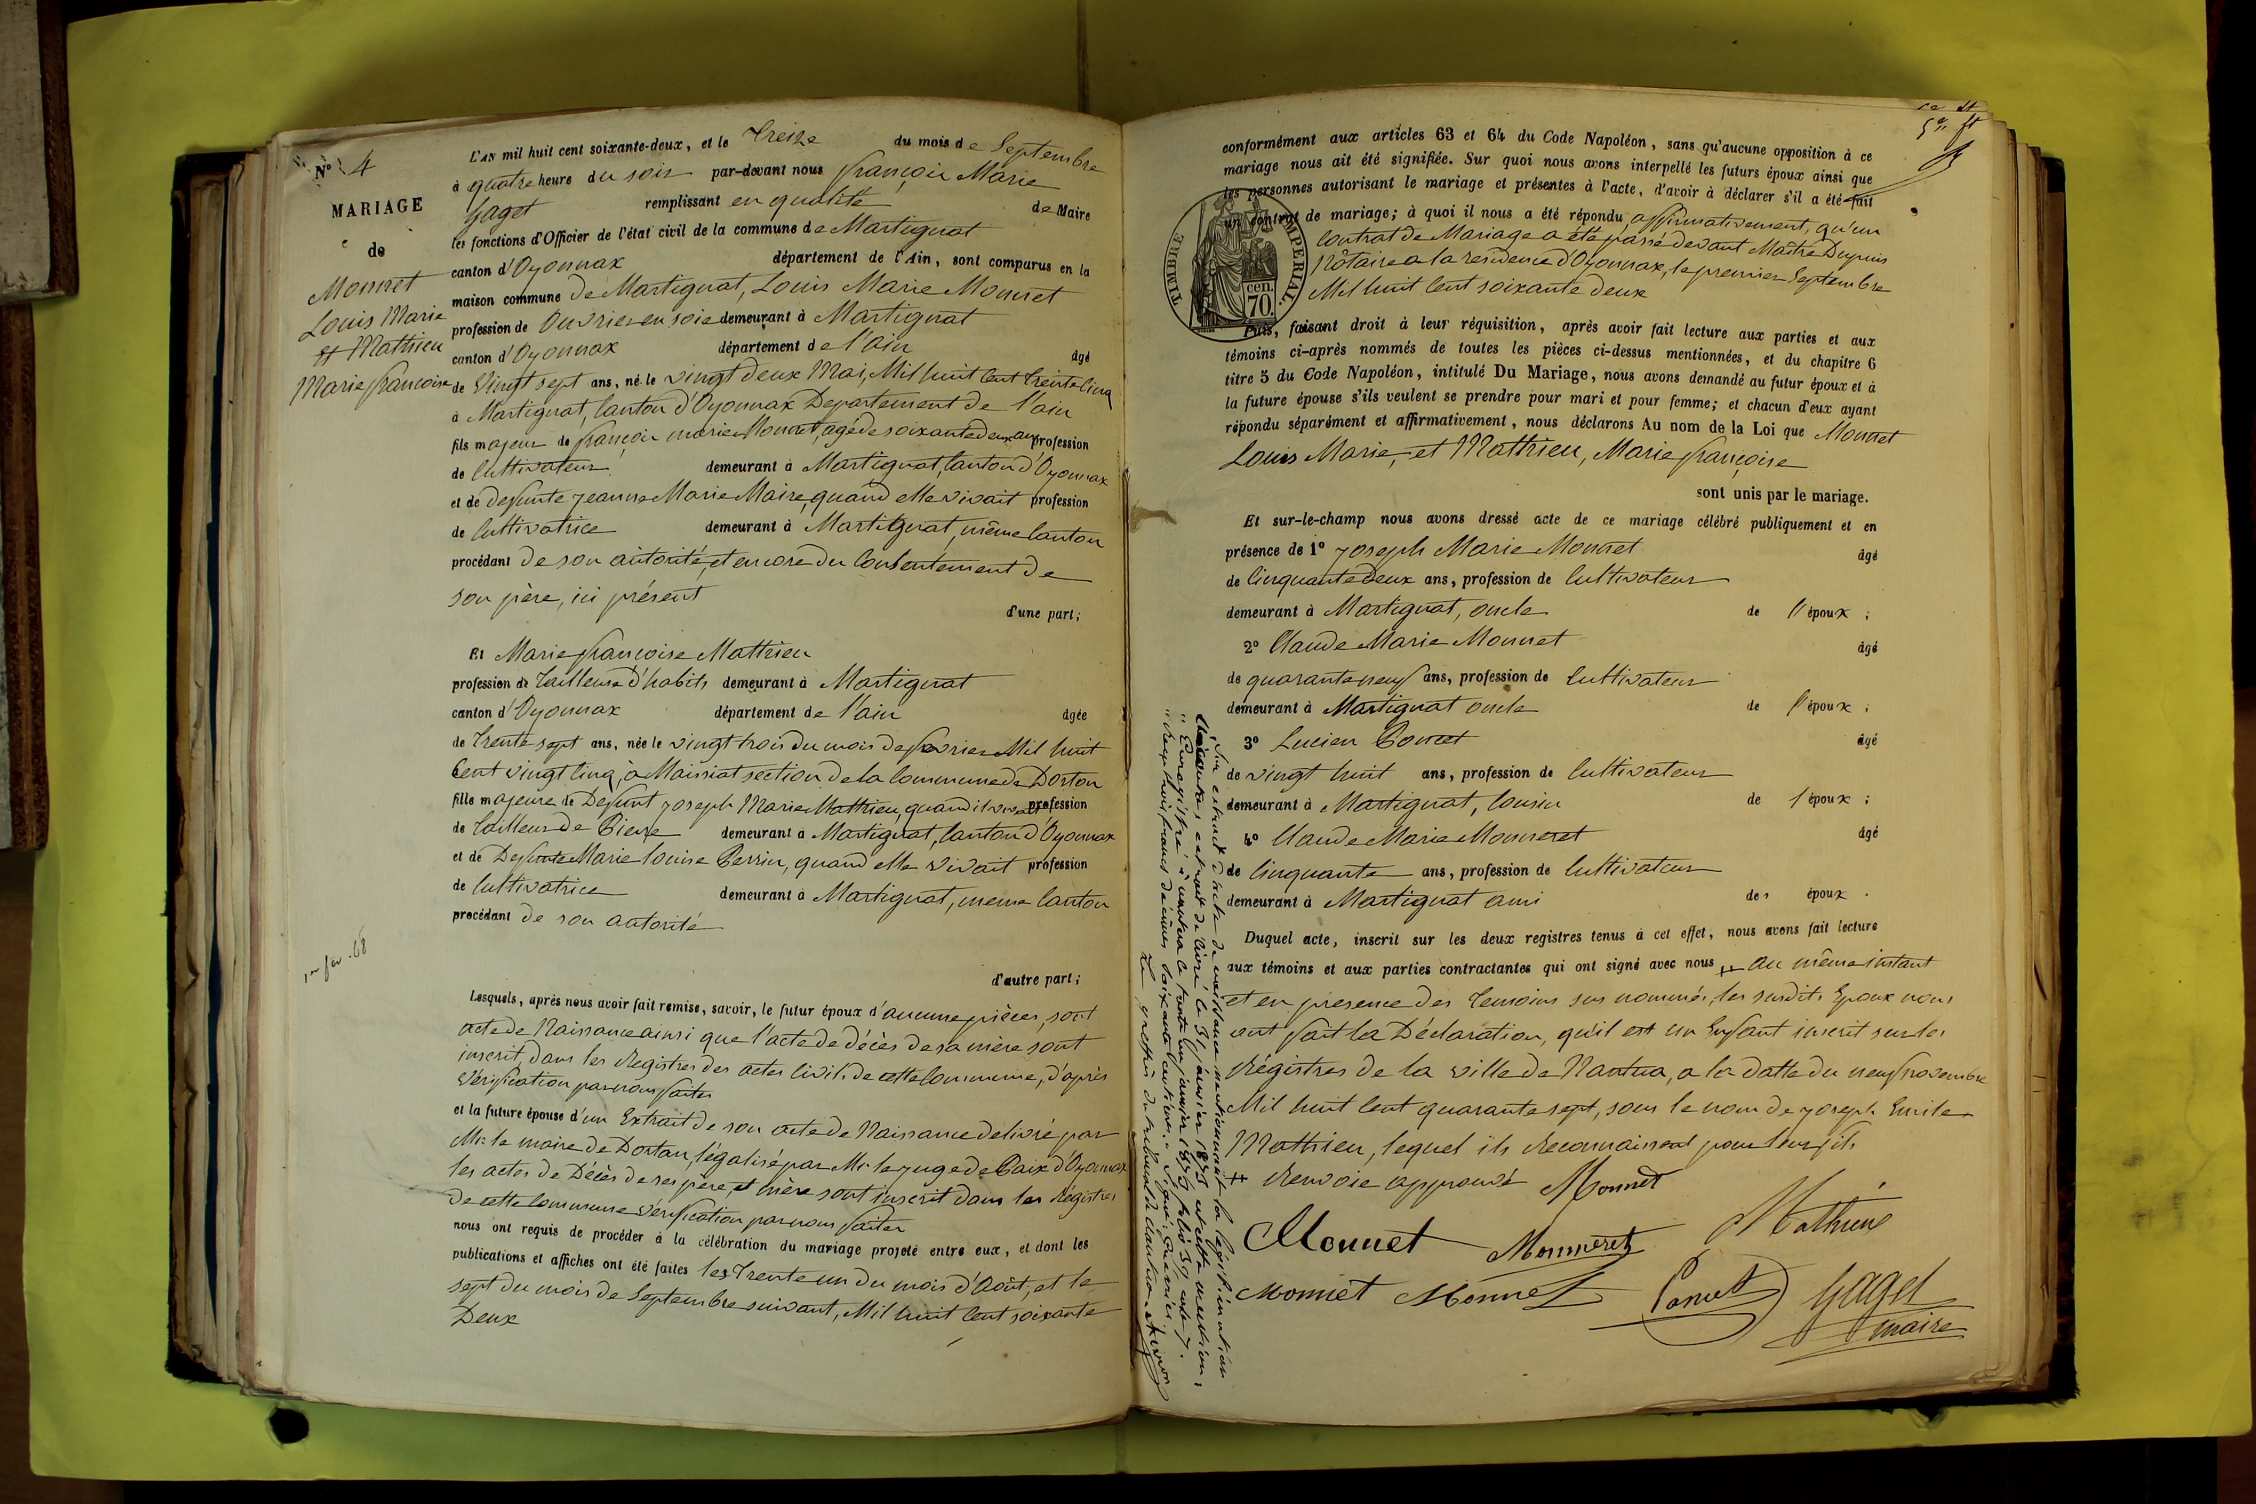 N° 4
MARIAGE
de
Monnet
Louis Marie
et Mathieu
Marie françoise
1er fev. 68
L'AN mil huit cent soixante-deux, et le Treize du mois de Septembre
à quatre heure du soir par-devant nous françois Marie
Gaget remplissant en qualité de Maire
les fonctions d'Officier de l'état civil de la commune de Martignat
canton d'Oyonnax département de l'Ain, sont comparus en la
maison commune de Martignat, Louis Marie Monnet
profession de Ouvrier en soie demeurant à Martignat
canton d'Oyonnax département de l'ain âgé
de Vingt sept ans, né le vingt deux Mai, Mil huit Cent Trente Cinq
à Martignat, Canton d'Oyonnax Departement de l'ain
fils majeur de françois marie Monnet, agé de soixante deux ans profession
de Cultivateur demeurant à Martignat, Canton d'Oyonnax
et de defunte jeanne Marie Maire, quand elle vivait profession
de Cultivatrice demeurant à Martignat, même Canton
procédant de son autorité, et encore du Consentement de
son père, ici présent
d'une part;
Et Marie françoise Mathieu
profession de Tailleuse d'habits demeurant à Martignat
canton d'Oyonnax département de l'ain âgée
de Trente sept ans, née le vingt trois du mois de fevrier Mil huit
Cent vingt Cinq, à Maissiat section de la Commune de Dortan
fille majeure de Defunt joseph Marie Mathieu, quand il vivait profession
de Tailleur de Pierre demeurant à Martignat, Canton d'Oyonnax
et de Defunte Marie louise Perrin, quand elle vivait profession
de Cultivatrice demeurant à Martignat, meme Canton
procédant de son autorité
d'autre part;
Lesquels, après nous avoir fait remise, savoir, le futur époux d'aucune pièces, sont
acte de Naissance ainsi que l'acte de décès de sa mère sont
inscrit, dans les Registres des actes Civils de cette Commune, d'après
Vérification par nous faites
et la future épouse d'un Extrait de son acte de Naissance delivré par
Mr le maire de Dortan, légalisé par Mr le juge de Paix d'Oyonnax
les actes de Décès de ses père, et mère sont inscrit dans les Registres
de cette Commune Vérification par nous faites
nous ont requis de procéder à la célébration du mariage projeté entre eux, et dont les
publications et affiches ont été faites les Trente un du mois d'Août, et le
sept du mois de Septembre suivant, Mil huit Cent soixante
Deux
conformément aux articles 63 et 64 du Code Napoléon, sans qu'aucune opposition à ce
mariage nous ait été signifiée. Sur quoi nous avons interpellé les futurs époux ainsi que
les personnes autorisant le mariage et présentes à l'acte, d'avoir à déclarer s'il a été fait
un contrat de mariage; à quoi il nous a été répondu affirmativement, qu'un
Contrat de Mariage a été passé devant Maître Dupuis
Nôtaire a la residence d'Oyonnax, le premier Septembre
Mil huit Cent soixante deux
TIMBRE IMPERIAL.
70 cen.
Puis, faisant droit à leur réquisition, après avoir fait lecture aux parties et aux
témoins ci-après nommés de toutes les pièces ci-dessus mentionnées, et du chapitre 6
titre 5 du Code Napoléon, intitulé Du Mariage, nous avons demandé au futur époux et à
la future épouse s'ils veulent se prendre pour mari et pour femme; et chacun d'eux ayant
répondu séparément et affirmativement, nous déclarons Au nom de la Loi que Monnet
Louis Marie, et Mathieu, Marie françoise
sont unis par le mariage.
Et sur-le-champ nous avons dressé acte de ce mariage célébré publiquement et en
présence de 1° joseph Marie Monnet âgé
de Cinquante Deux ans, profession de Cultivateur
demeurant à Martignat, oncle de l'époux;
2° Claude Marie Monnet âgé
de quarante neuf ans, profession de Cultivateur
demeurant à Martignat oncle de l'époux;
3° Lucien Poncet âgé
de vingt huit ans, profession de Cultivateur
demeurant à Martignat, Cousin de l'époux;
4° Claude Marie Monneret âgé
de Cinquante ans, profession de Cultivateur
demeurant à Martignat ami des époux.
Duquel acte, inscrit sur les deux registres tenus à cet effet, nous avons fait lecture
aux témoins et aux parties contractantes qui ont signé avec nous, au même instant
et en presence des Temoins sus nommés, les susdits Epoux nous
ont fait la Déclaration, qu'il est un Enfant inscrit sur les
Régistres de la ville de Nantua, a la datte du neuf novembre
Mil huit Cent quarante sept, sous le nom de joseph Emile
Mathieu, lequel ils Reconnaissent pour leur fils
Renvoie approuvé Monnet
Monnet Monneret Mathieu
Monnet Monnet Poncet Gaget
maire
Un extrait d'acte de naissance mentionnant la légitimation
extrait délivré le 31 janvier 1873 et cette mention,
"Enregistré à nantua le trente un janvier 1873 folio 39 case 7.
Le greffier du tribunal de Nantua